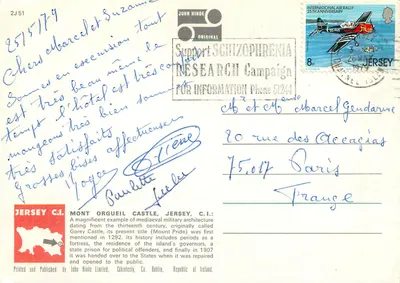 2J51
25/5/79
Chers Marcel et Suzanne
sommes en excursion tout
est très beau même le
temps l'hôtel est très
mangeons très bien sommes
très satisfaits
Grosses bises affectueuses
Paulette
JOHN HINDE
ORIGINAL
Support SCHIZOPHRENIA
RESEARCH Campaign
FOR INFORMATION Phone 51244
INTERNATIONAL AIR RALLY
25TH ANNIVERSARY
8p
JERSEY
1979
Mr et Mme Marcel Gendarme
20 rue des Accacias
75.017 Paris
France
JERSEY C.I.
MONT ORGUEIL CASTLE, JERSEY, C.I.:
A magnificent example of mediaeval military architecture
dating from the thirteenth century, originally called
Gorey Castle, its present title (Mount Pride) was first
mentioned in 1292. Its history includes periods as a
fortress, the residence of the island's governor, a
state prison for political offenders, and finally in 1907
it was handed over to the States when it was repaired
and opened to the public.
Printed and Published by John Hinde Limited, Cabinteely, Co. Dublin, Republic of Ireland.